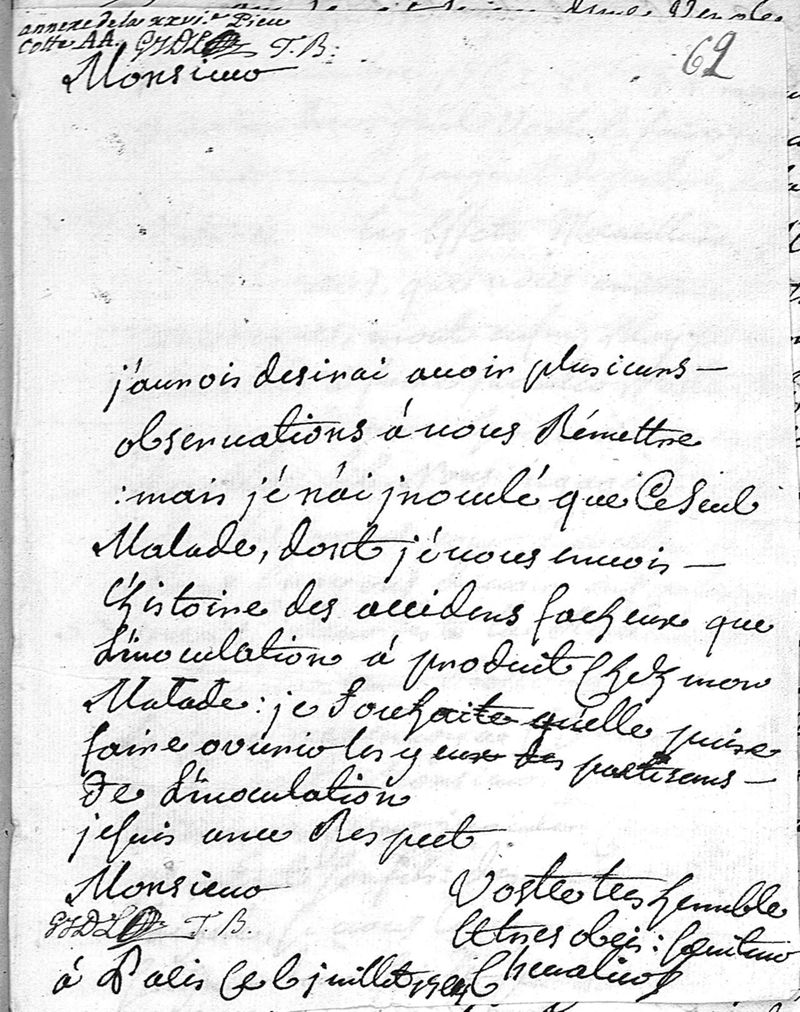 annexe de la xxvi.e Piece
Cotte AA. GHDL T. B.
62
Monsieur
j'aurois desirai avoir plusieurs —
observations á vous Rémettre
: mais jé n'ái jnoculé que Ce Seul
Malade, dont jé vous envois —
l'histoire des accidens facheux que
L'inoculation á produit Chez mon
Malade : je Souhaite quelle puise
faire ouvrir les yeux des partisans —
de L'inoculation
je suis avec Respect
Monsieur
Vostre tres humble
GHDL T. B.
Et tres obeis : serviteur
á Paris Ce 6 juillet
Chevalier